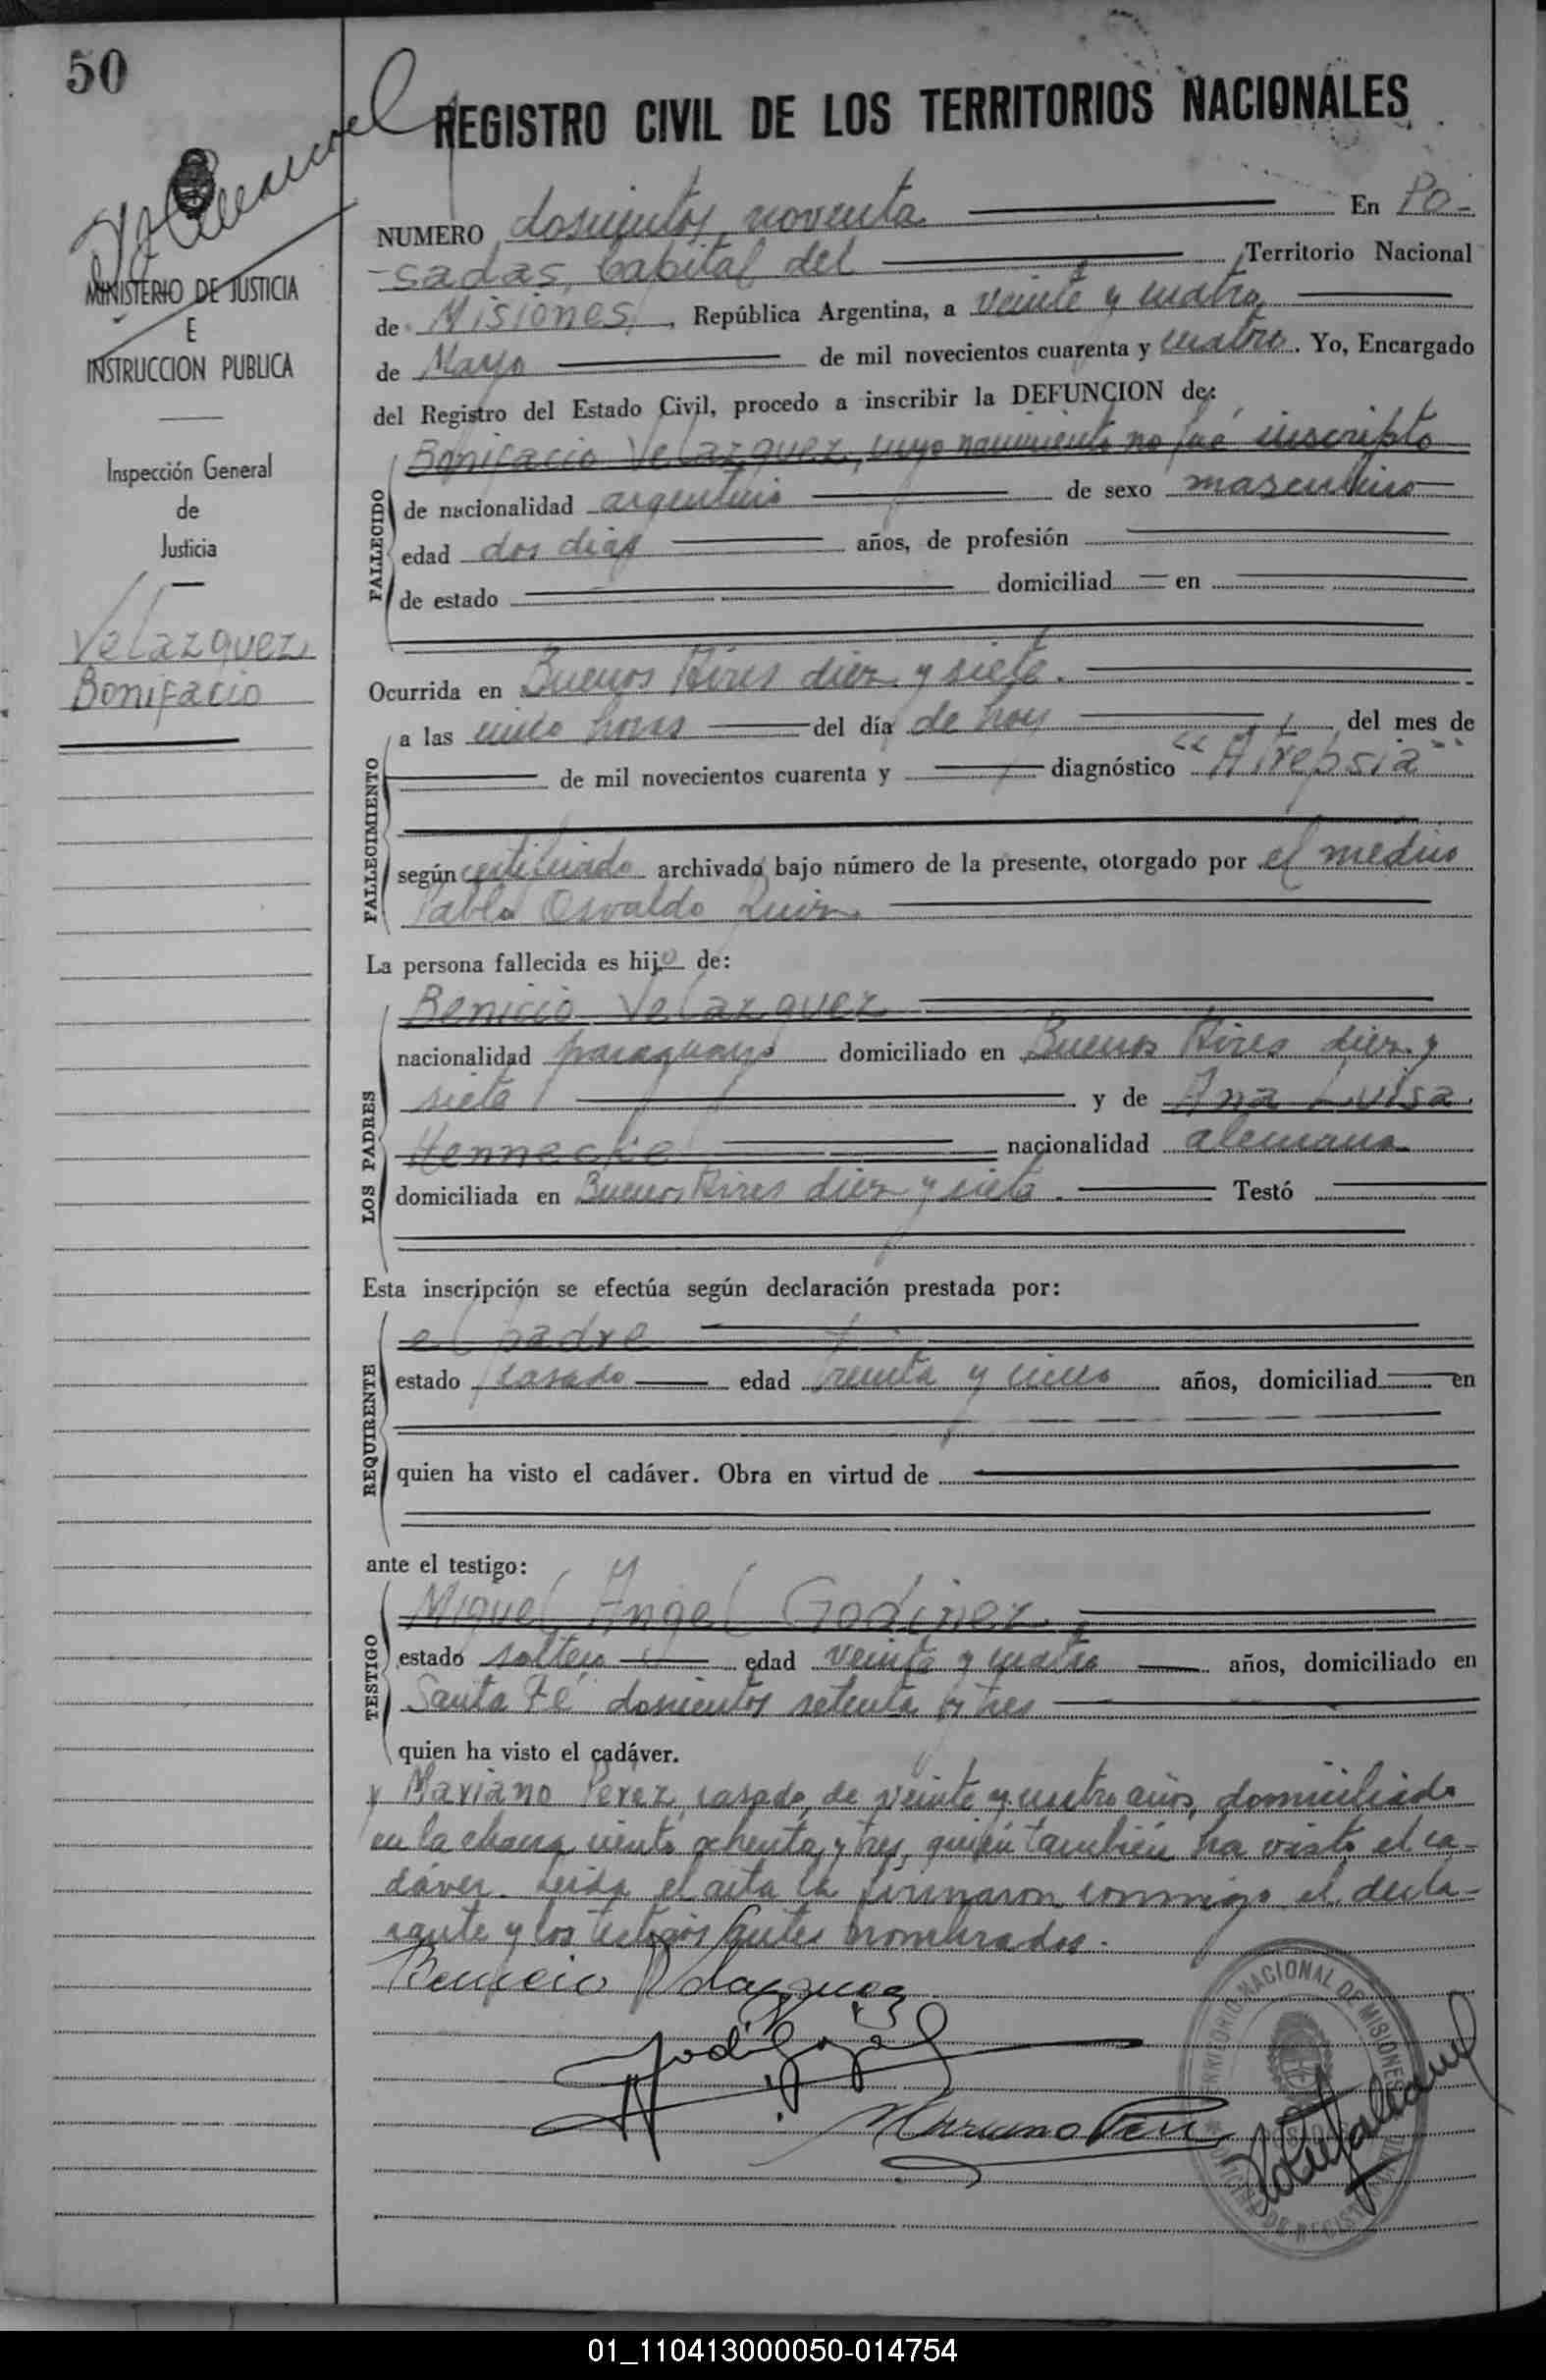 50
REGISTRO CIVIL DE LOS TERRITORIOS NACIONALES
MINISTERIO DE JUSTICIA
E
INSTRUCCION PUBLICA
Inspección General
de
Justicia
Velazquez,
Bonifacio
NUMERO doscientos noventa En Po-
sadas, Capital del Territorio Nacional
de Misiones, República Argentina, a veinte y cuatro
de Mayo de mil novecientos cuarenta y cuatro. Yo, Encargado
del Registro del Estado Civil, procedo a inscribir la DEFUNCION de:
Bonifacio Velazquez, cuyo nacimiento no fué inscripto
FALLECIDO
de nacionalidad argentino de sexo masculino
edad dos dias años, de profesión
de estado domiciliad en
Ocurrida en Buenos Aires diez y siete.
a las cinco horas del día de hoy del mes de
FALLECIMIENTO
de mil novecientos cuarenta y diagnóstico "Atrepsia"
según certificado archivado bajo número de la presente, otorgado por el medico
Pablo Osvaldo
La persona fallecida es hijo de:
Benicio Velazquez
LOS PADRES
nacionalidad paraguayo domiciliado en Buenos Aires diez y
siete y de Ana Luisa
Hennecke nacionalidad alemana
domiciliada en Buenos Aires diez y siete. Testó
Esta inscripción se efectúa según declaración prestada por:
el padre
REQUIRENTE
estado casado edad treinta y cinco años, domiciliad en
quien ha visto el cadáver. Obra en virtud de
ante el testigo:
Miguel Angel Godinez,
TESTIGO
estado soltero edad veinte y cuatro años, domiciliado en
Santa Fé doscientos setenta y tres
quien ha visto el cadáver.
y Mariano Perez, casado, de veinte y cuatro años, domiciliado
en la chacra ciento ochenta y tres, quien también ha visto el ca-
dáver. Leida el acta la firmaron conmigo el decla-
rante y los testigos antes nombrados.
Benicio Velazquez
Mariano Perez
TERRITORIO NACIONAL DE MISIONES
01_110413000050-014754